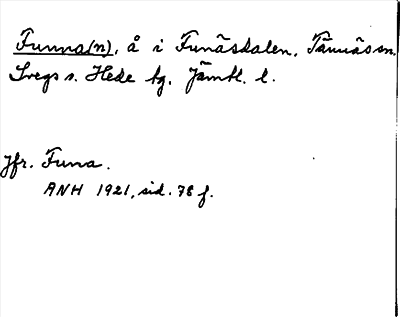 Funna(n), å i Funäsdalen, Tännäs sn.
Svegs s. Hede tg. Jämtl. l.
Jfr. Funa.
ANH 1921, sid. 78 f.